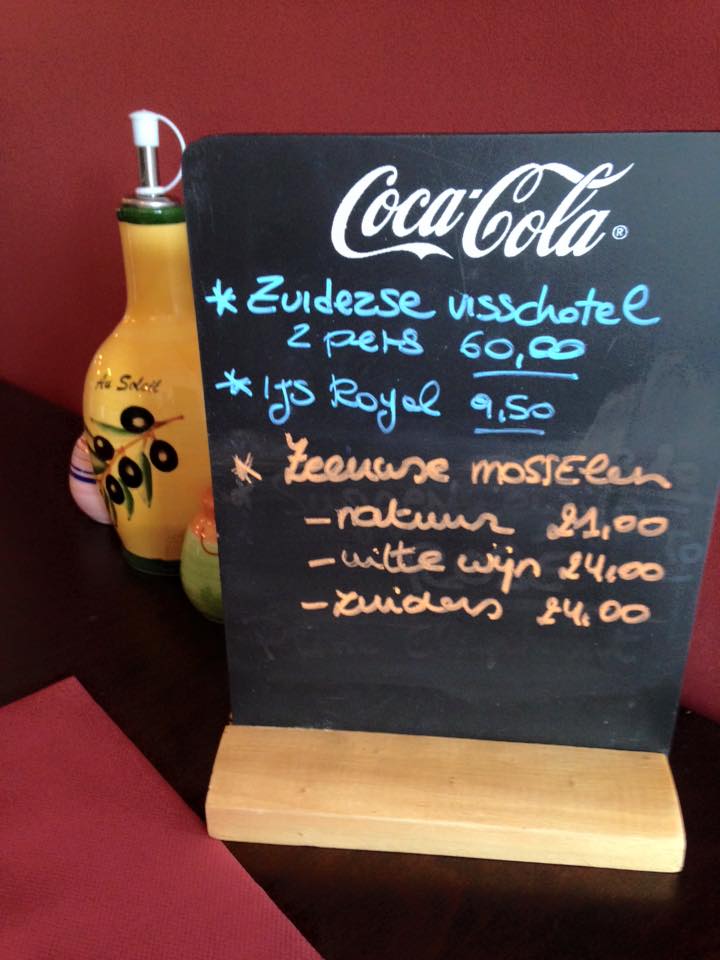 Coca-Cola®
* Zuiderse visschotel
2 pers 60,00
* Ijs Royal 9,50
* Zeeuwse mosselen
- natuur 21,00
- witte wijn 24,00
- zuiders 24,00
Au Soleil